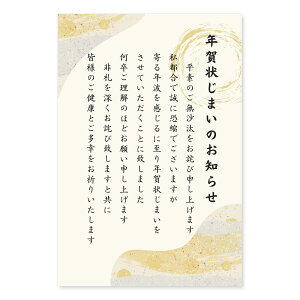 年賀状じまいのお知らせ
平素のご無沙汰をお詫び申し上げます
私都合で誠に恐縮でございますが
寄る年波を感じるに至り年賀状じまいを
させていただくことに致しました
何卒ご理解のほどお願い申し上げます
非礼を深くお詫び致しますと共に
皆様のご健康とご多幸をお祈りいたします